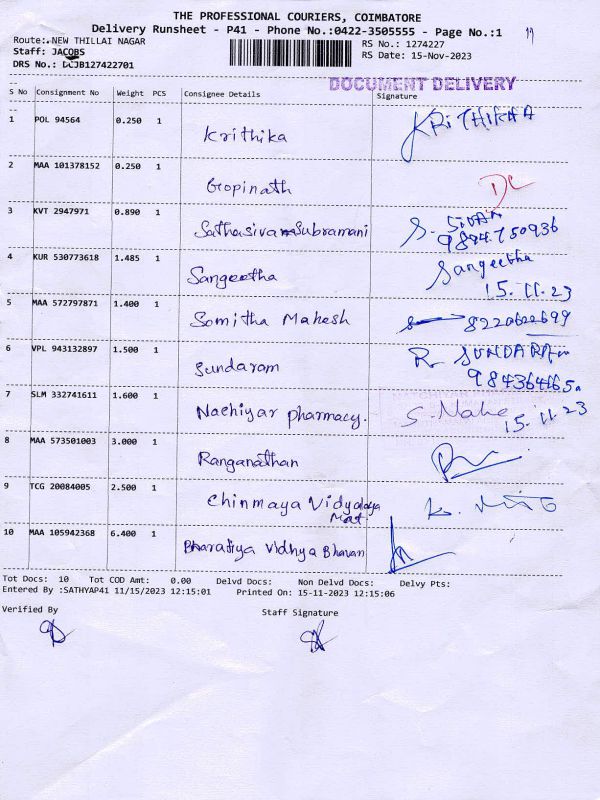 THE PROFESSIONAL COURIERS, COIMBATORE
Delivery Runsheet - P41 - Phone No.:0422-3505555 - Page No.:1
Route: NEW THILLAI NAGAR
RS No.: 1274227
Staff: JACOBS
RS Date: 15-Nov-2023
DRS No.: DCJB127422701
DOCUMENT DELIVERY
S No Consignment No Weight PCS Consignee Details Signature
1 POL 94564 0.250 1 Krithika KRITHIKAA
2 MAA 101378152 0.250 1 Gopinath DC
3 KVT 2947971 0.890 1 Sathasivam Subramani S. SIVAM
9884750936
4 KUR 530773618 1.485 1 Sangeetha Sangeetha
15.11.23
5 MAA 572797871 1.400 1 Somitha Mahesh 8220622699
6 VPL 943132897 1.500 1 Sundaram R. SUNDARAM
7 SLM 332741611 1.600 1 Nachiyar pharmacy. 15.11.23
8 MAA 573501003 3.000 1 Ranganathan
9 TCG 20084005 2.500 1 Chinmaya Vidyalaya
Mat.
10 MAA 105942368 6.400 1 Bharatiya Vidhya Bhavan
Tot Docs: 10 Tot COD Amt: 0.00 Delvd Docs: Non Delvd Docs: Delvy Pts:
Entered By :SATHYAP41 11/15/2023 12:15:01 Printed On: 15-11-2023 12:15:06
Verified By Staff Signature